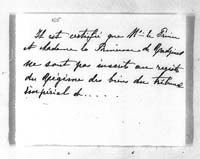 Il est certifié que Mr. le Prince
et Madame la Princesse de
ne sont pas inscrit au registre
du régime des biens du tribunal
impérial d.....